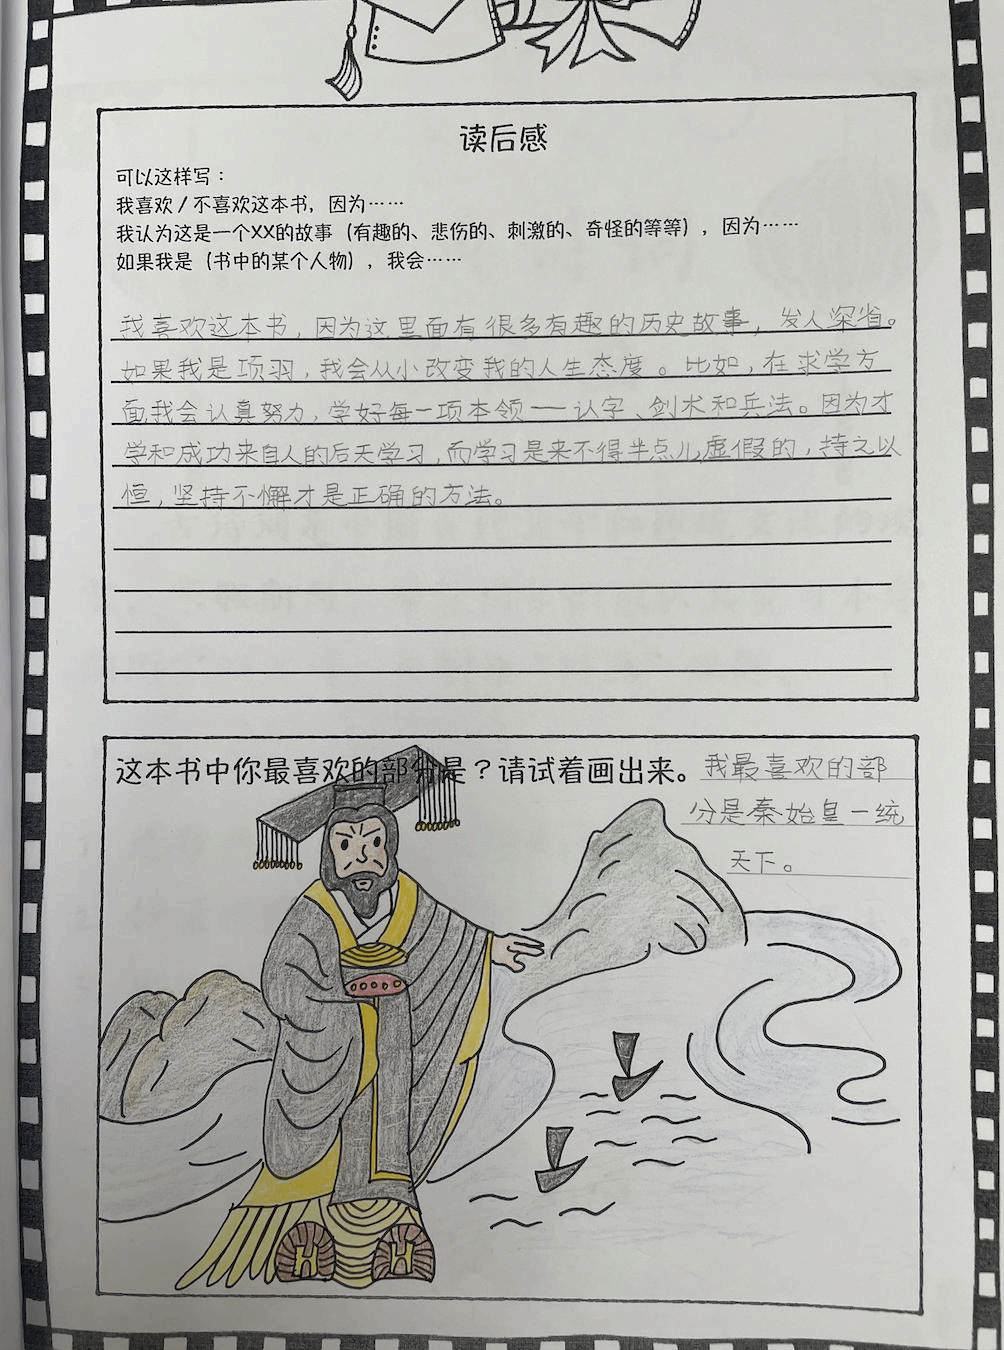 读后感
可以这样写：
我喜欢/不喜欢这本书，因为……
我认为这是一个XX的故事（有趣的、悲伤的、刺激的、奇怪的等等），因为……
如果我是（书中的某个人物），我会……
我喜欢这本书，因为这里面有很多有趣的历史故事，发人深省。
如果我是项羽，我会从小改变我的人生态度。比如，在求学方
面，我会认真努力，学好每一项本领——认字、剑术和兵法。因为才
学和成功来自人的后天学习，而学习是来不得半点儿虚假的，持之以
恒，坚持不懈才是正确的方法。
这本书中你最喜欢的部分是？请试着画出来。我最喜欢的部
分是秦始皇一统
天下。